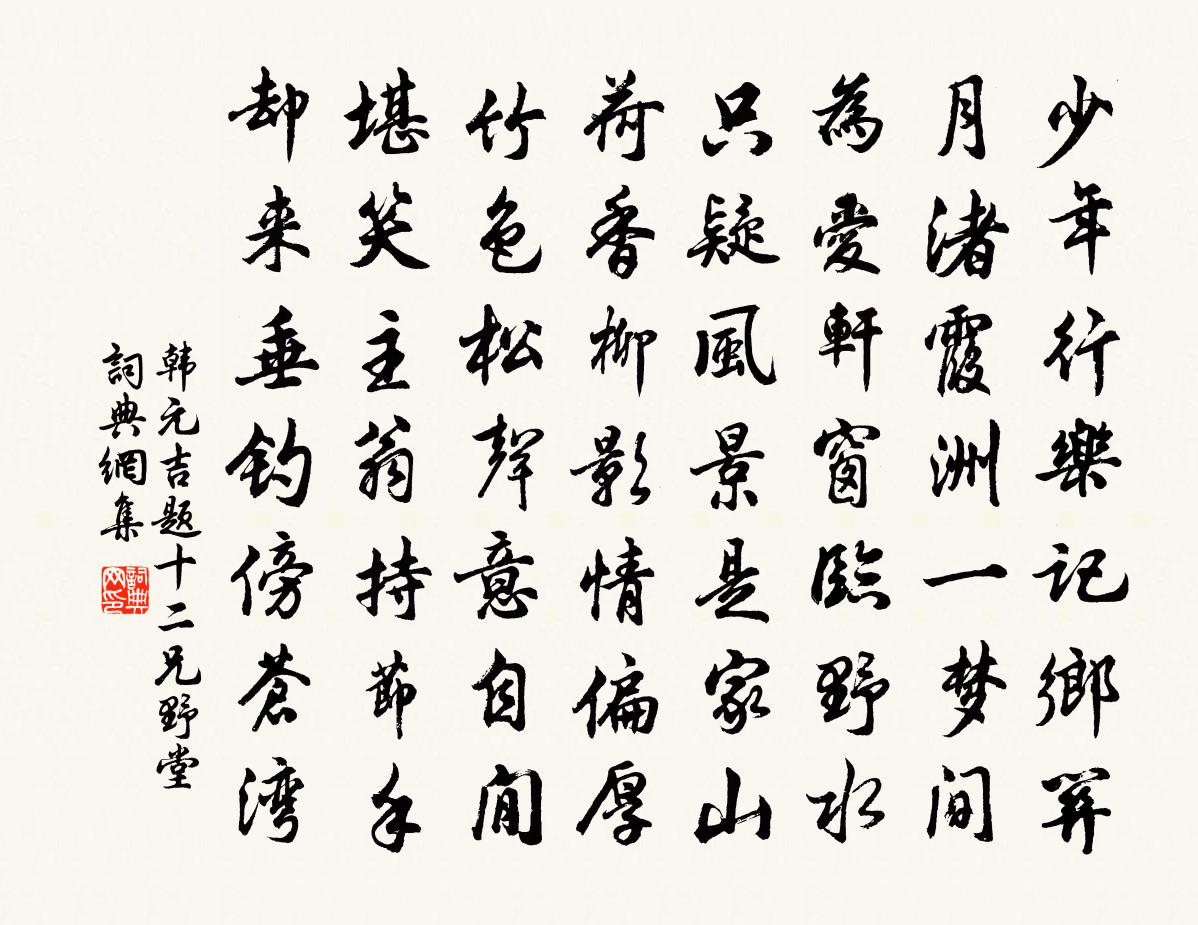 少年行樂記鄉關
月渚霞洲一梦間
為愛軒窗臨野水
只疑風景是家山
荷香柳影情偏厚
竹色松聲意自閒
堪笑主翁持節手
却来垂釣傍蒼湾
韩元吉题十二兄野堂
詞典網集
詞典網印